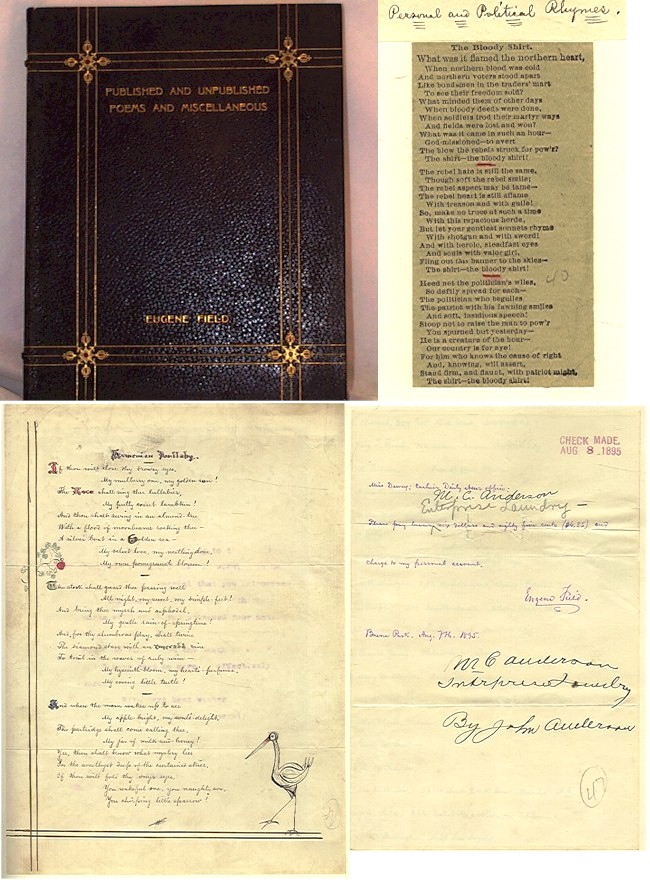 PUBLISHED AND UNPUBLISHED
POEMS AND MISCELLANEOUS
EUGENE FIELD
Personal and Political Rhymes.
The Bloody Shirt.
What was it flamed the northern heart,
When northern blood was cold
And northern voters stood apart
Like bondsmen in the traders' mart
To see their freedom sold?
What minded them of other days
When bloody deeds were done,
When soldiers trod their martyr ways
And fields were lost and won?
What was it came in such an hour—
God-missioned—to avert
The blow the rebels struck for pow'r?
The shirt—the bloody shirt!
The rebel hate is still the same,
Though soft the rebel smile;
The rebel aspect may be tame—
The rebel heart is still aflame
With treason and with guile!
So, make no truce at such a time
With this rapacious horde,
But let your gentlest sonnets rhyme
With shotgun and with sword!
And with heroic, steadfast eyes
And souls with valor girt,
Fling out this banner to the skies—
The shirt—the bloody shirt!
Heed not the politician's wiles,
So deftly spread for each—
The politician who beguiles
The patriot with his fawning smiles
And soft, insidious speech!
Stoop not to raise the man to pow'r
You spurned but yesterday—
He is a creature of the hour—
Our country is for aye!
For him who knows the cause of right
And, knowing, will assert,
Stand firm, and flaunt, with patriot might,
The shirt—the bloody shirt!
40
Armenian Lullaby.
If thou wilt close thy drowsy eyes,
My mulberry one, my golden sun!
The Rose shall sing thee lullabies,
My pretty cosset lambkin!
And thou shalt swing in an almond-tree
With a flood of moonbeams rocking thee—
A silver boat in a golden sea—
My velvet love, my nestling dove,
My own pomegranate blossom!
The stork shall guard thee passing well
All night, my sweet, my dimple-feet!
And bring thee myrrh and asphodel,
My gentle rain-of-springtime!
And, for thy slumbrous play, shall twine
The diamond stars with an emerald vine
To trail in the waves of ruby wine—
My hyacinth-bloom, my heart's-perfume,
My cooing little turtle!
And when the morn wakes up to see
My apple-bright, my soul's-delight,
The partridge shall come calling thee,
My jar of milk-and-honey!
Yes, thou shalt know what mystery lies
In the amethyst deep of the curtained skies,
If thou wilt fold thy onyx eyes,
You wakeful one, you naughty son,
You chirping little sparrow!
CHECK MADE.
AUG 8 1895
Miss Dewey, Cashier Daily News office:
M. C. Anderson
Enterprise Laundry
Please pay laundry six dollars and eighty five cents and
charge to my personal account.
Eugene Field.
Buena Park, Aug. 7th, 1895.
M C Anderson
By John Anderson